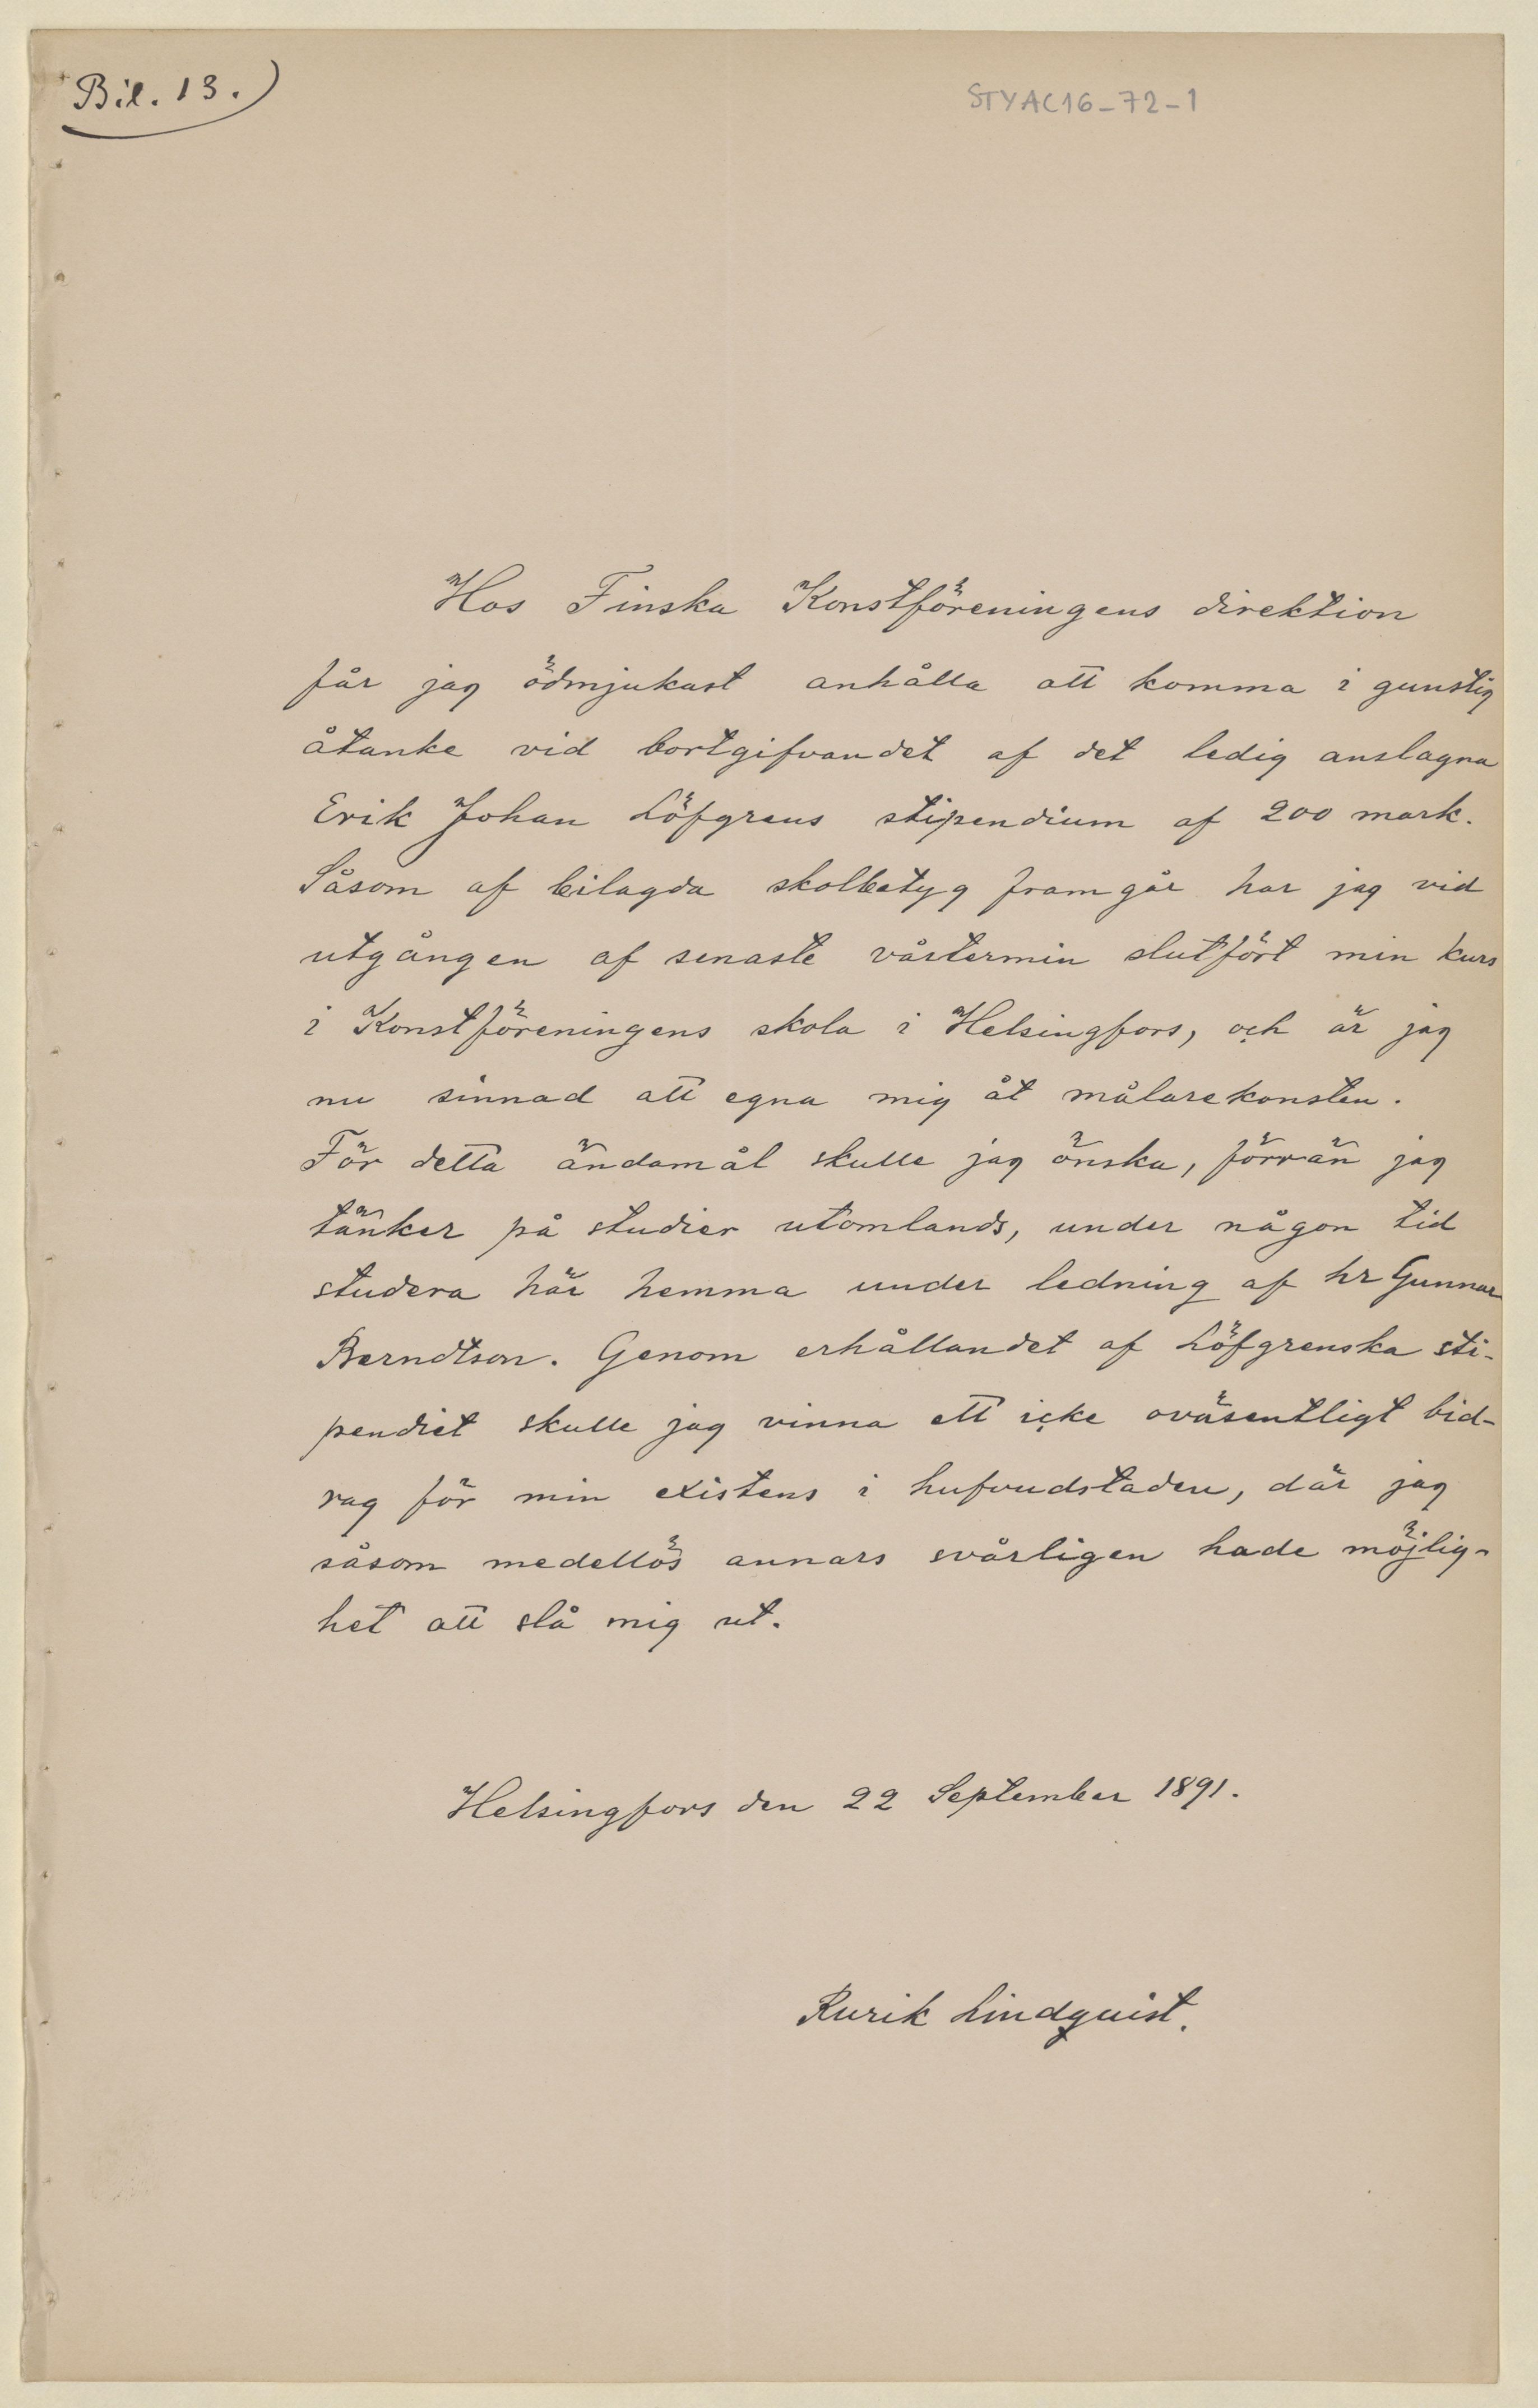 Bil. 13.)
STYAC16-72-1
Hos Finska Konstföreningens direktion
får jag ödmjukast anhålla att komma i gunstig
åtanke vid bortgifvandet af det ledig anslagna
Erik Johan Löfgrens stipendium af 200 mark.
Såsom af bilagda skolbetyg framgår har jag vid
utgången af senaste vårtermin slutfört min kurs
i Konstföreningens skola i Helsingfors, och är jag
nu sinnad att egna mig åt målarekonsten.
För detta ändamål skulle jag önska, förrän jag
tänker på studier utomlands, under någon tid
studera här hemma under ledning af hr Gunnar
Berndtson. Genom erhållandet af Löfgrenska sti-
pendiet skulle jag vinna ett icke oväsentligt bid-
rag för min existens i hufvudstaden, där jag
såsom medellös annars svårligen hade möjlig-
het att slå mig ut.
Helsingfors den 22 September 1891.
Rurik Lindquist.